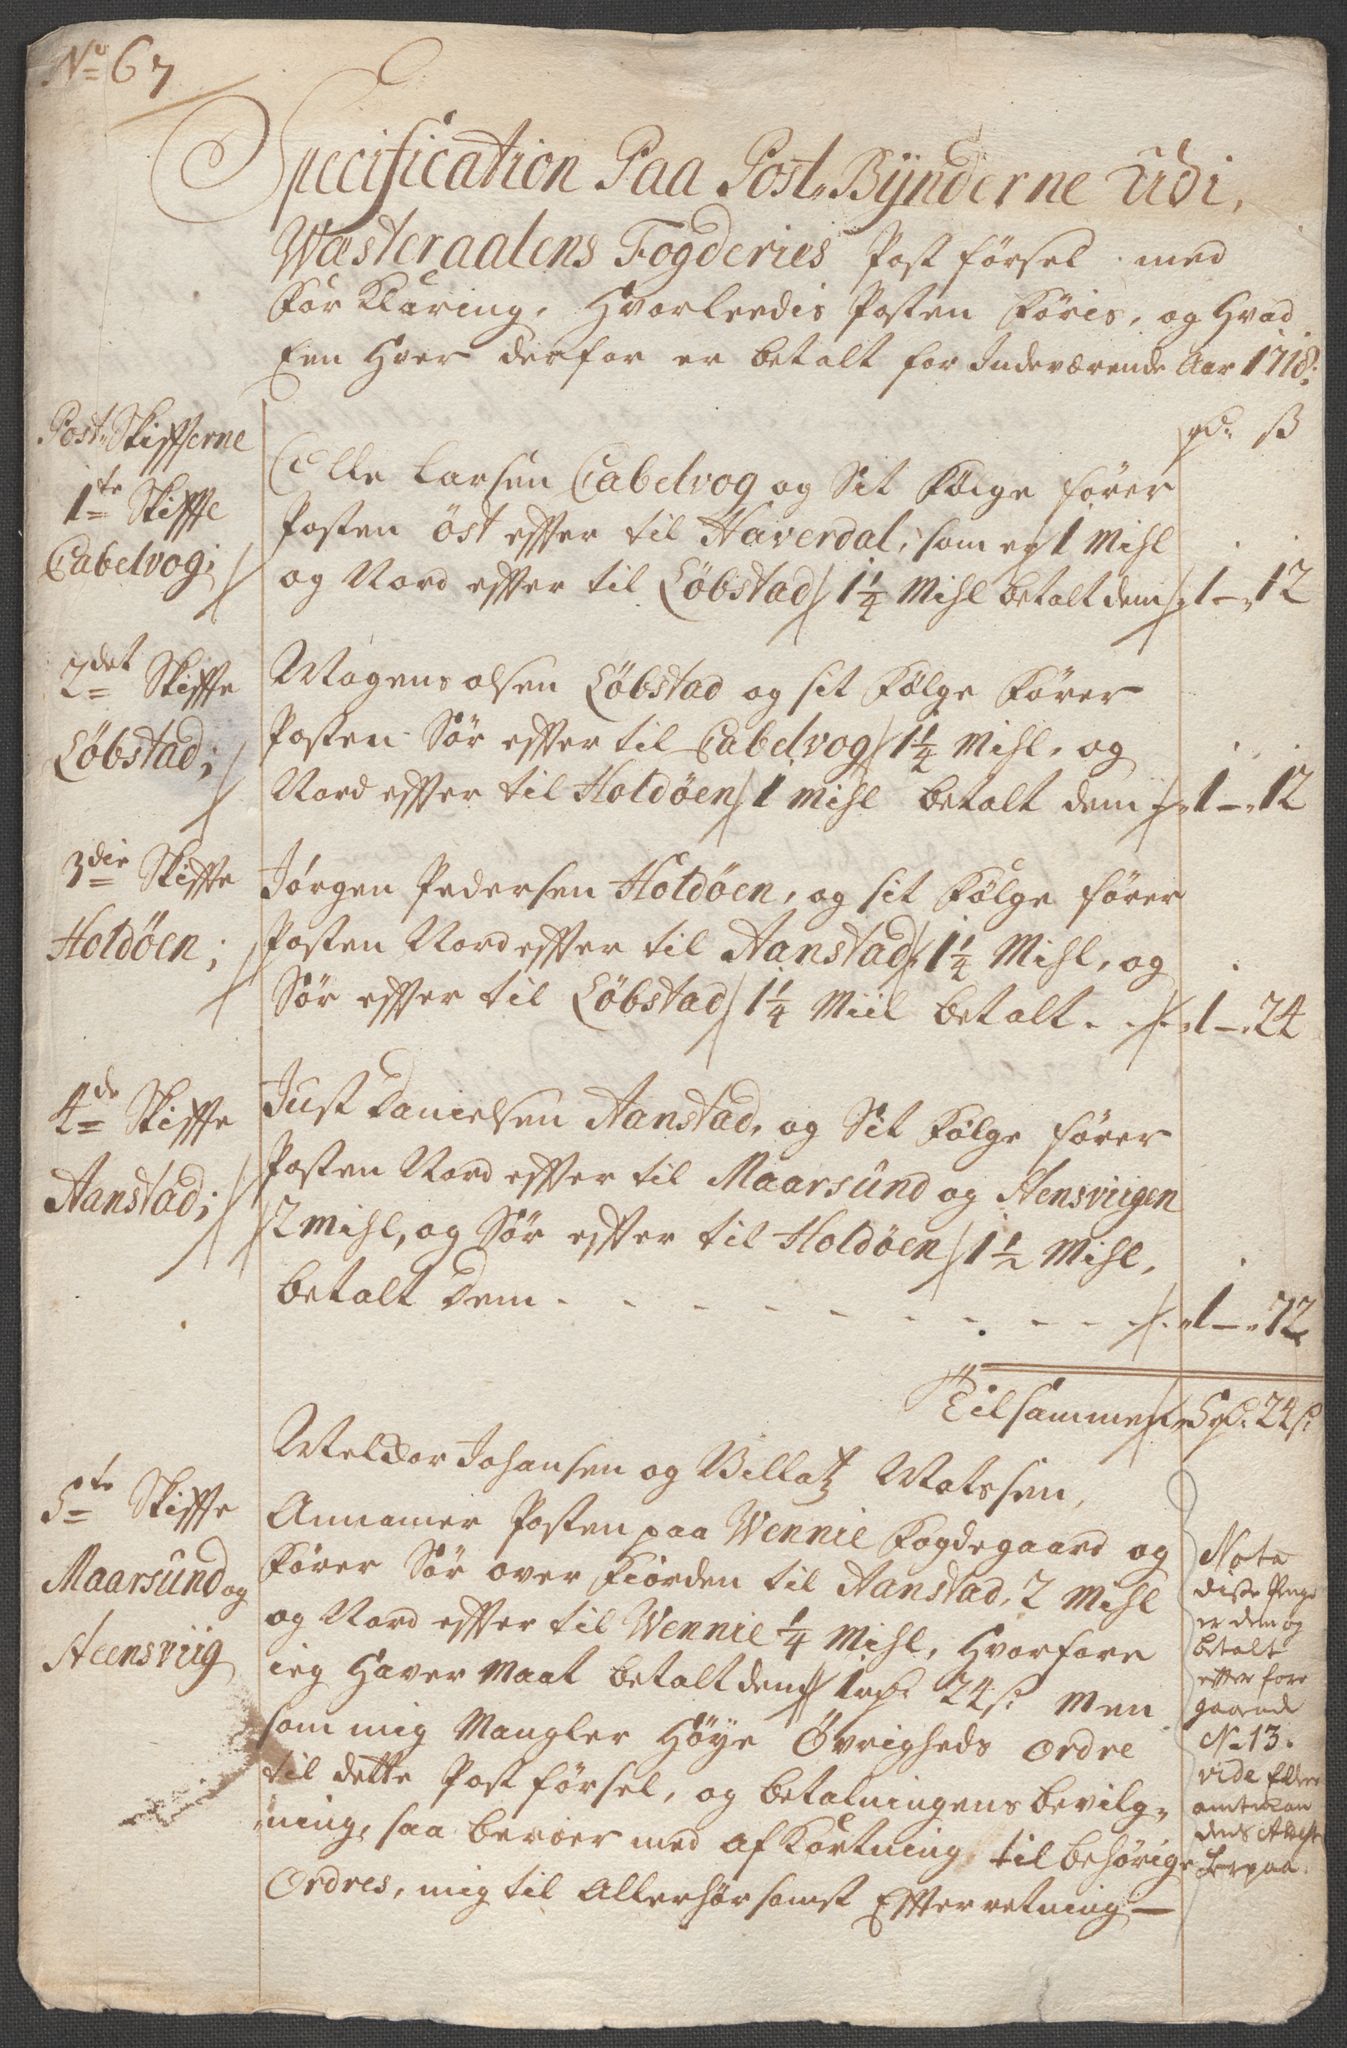 No 67
Specification Paa Post-Bÿnderne Udi,
Wæsteraalens Fogderies Post førsel med
For Klaring, Hvorleedis Posten Føris, og Hvad
Een Hver derfor er betalt for Indeværende Aar 1718:
rd: ß
Post-Skifferne
1te Skiffte
Cabelvog;
Olle Larsen Cabelvog og Sit Følge fører
Posten öst effter til Haverdal, som er 1 Mihl
og Nord effter til Löbstad 1 1/4 Mihl betalt dem 1 - 12
2det Skiffte
Löbstad;
Mogens olsen Löbstad og sit Følge Fører
Posten Sör effter til Cabelvog 1 1/2 Mihl, og
Nord effter til Holdöen 1 mihl betalt dem 1 - 12
3die Skiffte
Holdöen;
Jørgen Pedersen Holdöen, og sit Følge fører
Posten Nord effter til Aanstad 1 1/2 Mihl, og
Sör effter til Löbstad 1 1/4 Miil betalt 1 - 24
4de Skiffte
Aanstad;
Just Danielsen Aanstad, og Sit Følge fører
Posten Nord effter til Maarsund og Steensviigen
2 mihl, og Sör effter til Holdöen 1 1/2 Mihl,
betalt Dem - - - - - - - - 1 - 72
Tilsammen 5 rd: 24 ß
5te Skiffte
Maarsund og
Steensviig
Johansen og Matssen,
Annamer Posten paa Wennie Fogdegaard og
Fører Sör over Fiorden til Aanstad, 2 Mihl
og Nord effter til Wennie 1/4 Mihl, Hvorfore
ieg Haver Maat betalt dem 1 rd: 24 ß: Men
som mig Mangler Höÿe Övrigheds Ordre
til dette Post førsel, og betalningens bevilg-
ning, saa beroer med afkortning til behörige
Ordres, mig til Allerhörsomst Effterretning -
Nota
disse Penge
er dem og
betalt
efter fore
gaaende
No 13.
vide
amtman
dens Attest
herpaa.